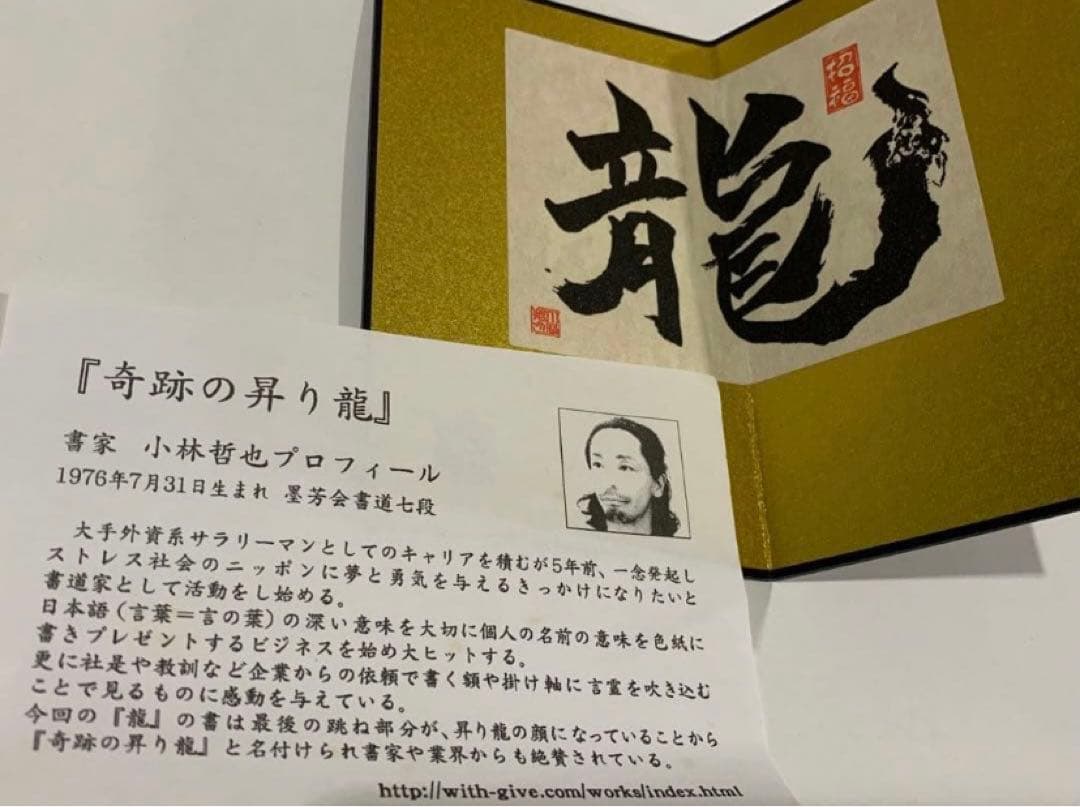 龍
招福
『奇跡の昇り龍』
書家　小林哲也プロフィール
1976年7月31日生まれ 墨芳会書道七段
大手外資系サラリーマンとしてのキャリアを積むが5年前、一念発起し
ストレス社会のニッポンに夢と勇気を与えるきっかけになりたいと
書道家として活動をし始める。
日本語（言葉＝言の葉）の深い意味を大切に個人の名前の意味を色紙に
書きプレゼントするビジネスを始め大ヒットする。
更に社是や教訓など企業からの依頼で書く額や掛け軸に言霊を吹き込む
ことで見るものに感動を与えている。
今回の『龍』の書は最後の跳ね部分が、昇り龍の顔になっていることから
『奇跡の昇り龍』と名付けられ書家や業界からも絶賛されている。
http://with-give.com/works/index.html